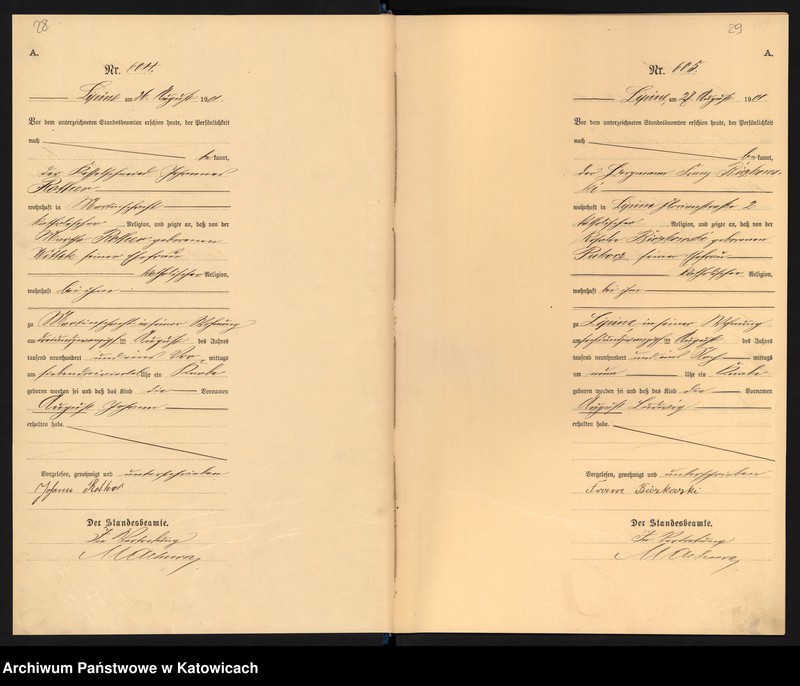 28
A.
Nr. 604.
Lipine am 26. August 1901.
Vor dem unterzeichneten Standesbeamten erschien heute, der Persönlichkeit
nach
be kannt,
der Johannes
wohnhaft in Martinschacht
katholischer Religion, und zeigte an, daß von der
Martha geborenen
Wittek seiner Ehefrau
katholischer Religion,
wohnhaft bei ihm
zu Martinschacht in seiner Wohnung
am dreiundzwanzigsten August des Jahres
tausend neunhundert und eins Vor mittags
um Uhr ein Knabe
geboren worden sei und daß das Kind die Vornamen
August Johann
erhalten habe.
Vorgelesen, genehmigt und unterschrieben
Der Standesbeamte.
In Vertretung
29
A.
Nr. 605.
Lipine, am 27. August 1901.
Vor dem unterzeichneten Standesbeamten erschien heute, der Persönlichkeit
nach
be kannt,
der Bergmann Franz
wohnhaft in Lipine Florianstraße 2
katholischer Religion, und zeigte an, daß von der
geborenen
seiner Ehefrau
katholischer Religion,
wohnhaft bei ihm
zu Lipine in seiner Wohnung
am August des Jahres
tausend neunhundert und eins Nach mittags
um neun Uhr ein Knabe
geboren worden sei und daß das Kind die Vornamen
August Ludwig
erhalten habe.
Vorgelesen, genehmigt und unterschrieben
Der Standesbeamte.
In Vertretung
Archiwum Państwowe w Katowicach